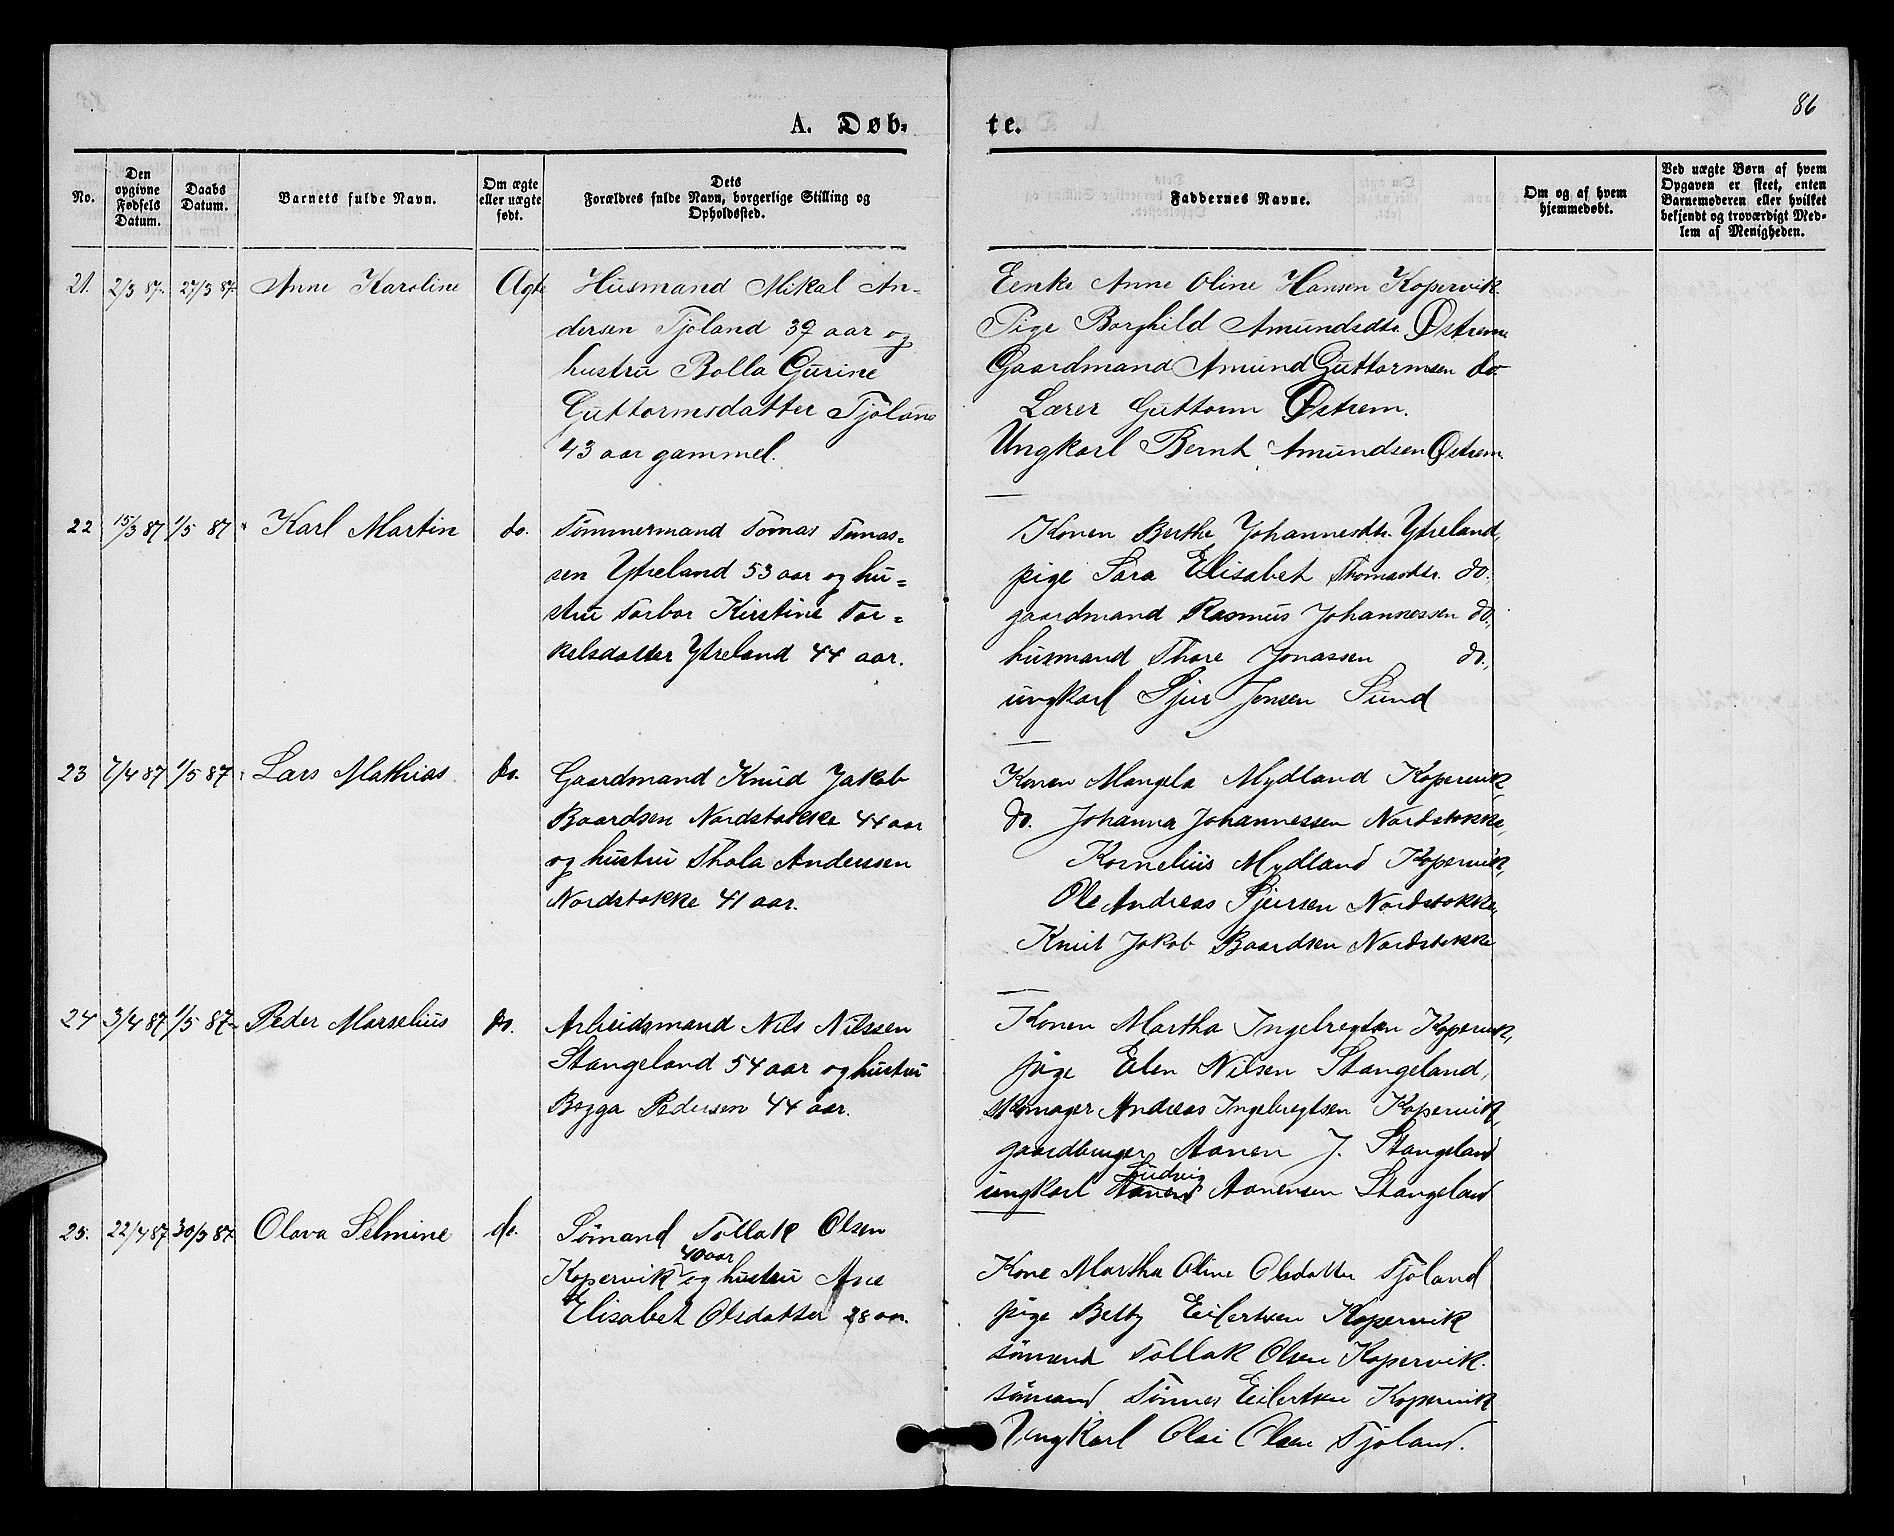 86
A. Døb=
te.
No.
Den opgivne Fødsels Datum.
Daabs Datum.
Barnets fulde Navn.
Om ægte eller uægte født.
Dets Forældres fulde Navn, borgerlige Stilling og Opholdssted.
Faddernes Navne.
Om og af hvem hjemmedøbt.
Ved uægte Børn af hvem Opgaven er skeet, enten Barnemoderen eller hvilket bekjendt og troværdigt Medlem af Menigheden.
21. 2/3 87. 27/3 87. Anne Karoline Ægte
Husmand Mikal An-
dersen Tjøland 39 aar og
hustru Bolla Gurine
Guttormsdatter Tjøland
43 aar gammel.
Enke Anne Oline Hansen Kopervik.
Pige Borghild Amundsdtr. Østrem
Gaardmand Amund Guttormsen do
Lærer Guttorm Østrem.
Ungkarl Bernt Amundsen Østrem
22 15/3 87 1/5 87 Karl Martin do.
Tømmermand Tomas Tomas=
sen Ytreland 53 aar og hu=
stru Torbor Kirstine Tor=
kelsdatter Ytreland 44 aar.
Konen Berthe Johannesdtr. Ytreland,
pige Sara Elisabet Thomasdtr. do.
gaardmand Rasmus Johannessen do.,
husmand Thore Jonassen do.,
ungkarl Sjur Jensen Sund
23 7/4 87 1/5 87 Lars Mathias. do.
Gaardmand Knud Jakob
Baardsen Nordstokke 44 aar
og hustru Thala Andersen
Nordstokke 41 aar.
Konen Mangela Mydland Kopervik
do. Johanna Johannessen Nordstokke,
Kornelius Mydland Kopervik,
Ole Andreas Sjursen Nordstokke,
Knut Jakob Baardsen Nordstokke
24 3/4 87 1/5 87 Peder Marselius do.
Arbeidsmand Nils Nilssen
Stangeland 54 aar og hustru
Bogga Pedersen 44 aar.
Konen Martha Ingebregtsen Kopervik,
pige Elen Nilsen Stangeland,
skomager Andreas Ingebregtsen Kopervik,
gaardbruger Aanen J. Stangeland
Ludvig
ungkarl Aanen Aanensen Stangeland
25. 22/4 87 30/5 87 Olava Selmine do.
Sømand Tollak Olsen
40 aar
Kopervik og hustru Ane
Elisabet Olsdatter 28 aar.
Kone Martha Oline Olsdatter Tjøland
pige Betty Eilertsen Kopervik
sømand Tollak Olsen Kopervik.
sømand Tønnes Eilertsen Kopervik
Ungkarl Olai Olsen Tjøland.